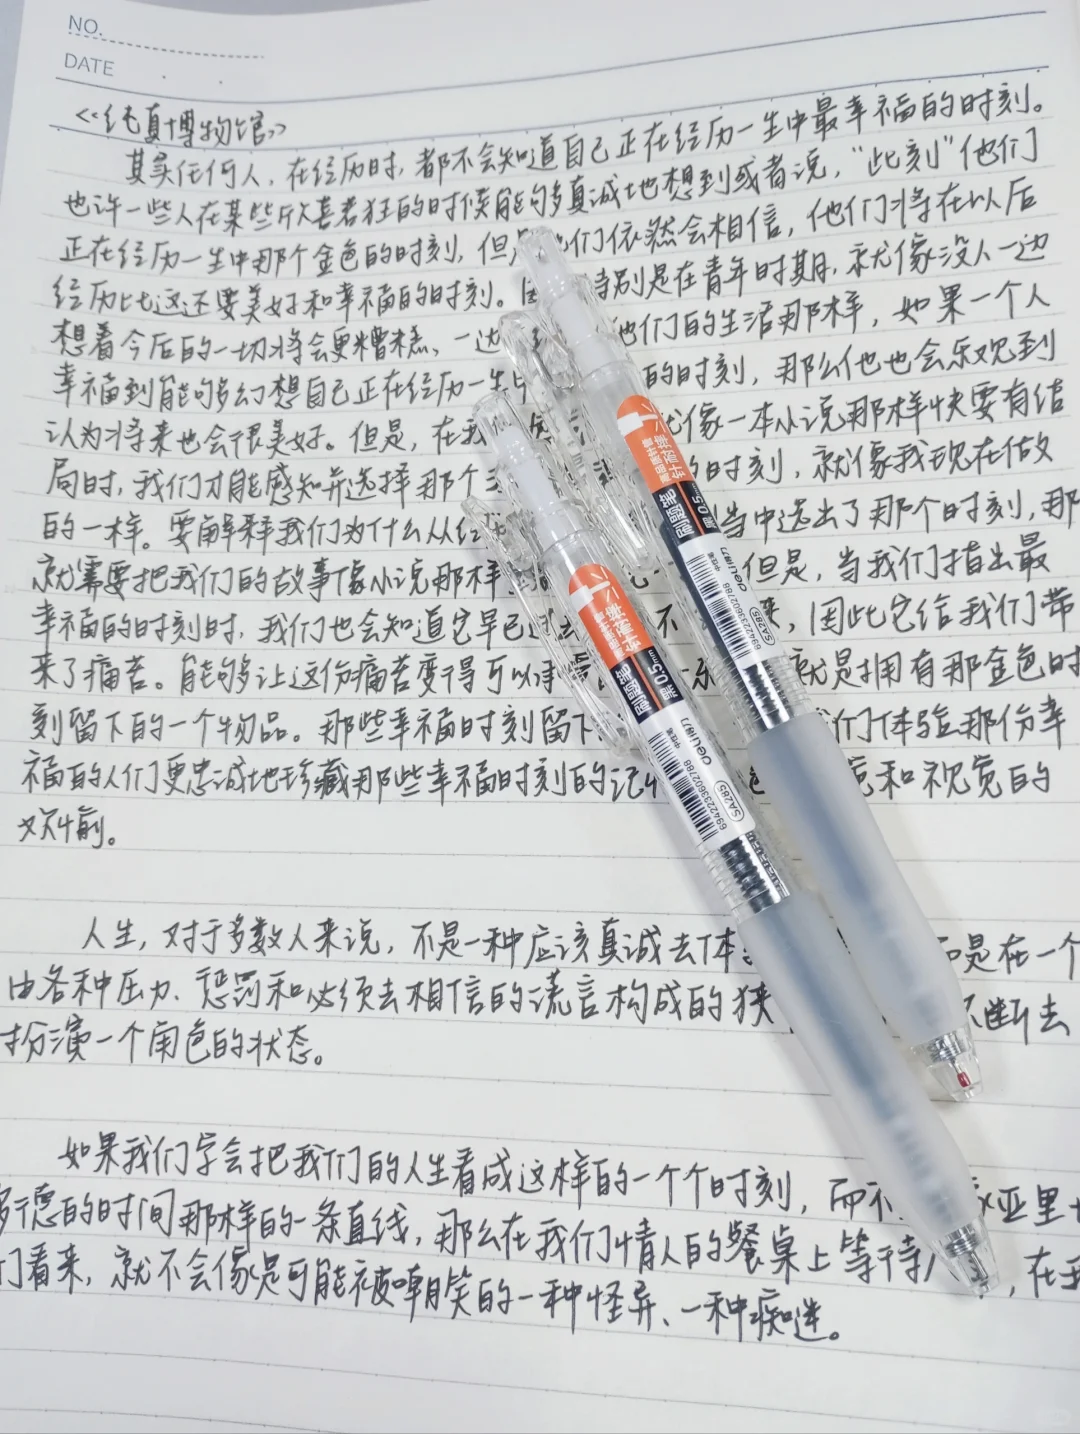 NO.
DATE
《纯真博物馆》
其实任何人,在经历时,都不会知道自己正在经历一生中最幸福的时刻。
也许一些人在某些欣喜若狂的时候能够真诚地想到或者说,“此刻”他们
正在经历一生中那个金色的时刻,但 们依然会相信,他们将在以后
经历比这还要美好和幸福的时刻。 特别是在青年时期,就像没人一边
想着今后的一切将会更糟糕、一边 他们的生活那样,如果一个人
幸福到能够幻想自己正在经历一生 的时刻,那么他也会乐观到
认为将来也会很美好。但是,在我 像一本小说那样快要有结
局时,我们才能感知并选择那个 的时刻,就像我现在做
的一样。要解释我们为什么从 当中选出了那个时刻,那
就需要把我们的故事像小说那样 但是,当我们指出最
幸福的时刻时,我们也会知道它早已 不 来,因此它给我们带
来了痛苦。能够让这份痛苦变得可以 就是拥有那金色时
刻留下的一个物品。那些幸福时刻留下 们体验那份幸
福的人们更忠诚地珍藏那些幸福时刻的记 觉和视觉的
欢愉。
人生,对于多数人来说,不是一种应该真诚去体 而是在一个
由各种压力、惩罚和必须去相信的谎言构成的狭 不断去
扮演一个角色的状态。
如果我们学会把我们的人生看成这样的一个个时刻,而不 亚里士
多德的时间那样的一条直线,那么在我们情人的餐桌上等待 ,在我
们看来,就不会像是可能被嘲笑的一种怪异、一种痴迷。
针耐摔
刷题笔
黑 0.5mm
中性笔
deli得力
6942233602788
SA285
针耐摔
刷题笔
黑 0.5mm
中性笔
deli得力
6942233602788
SA285